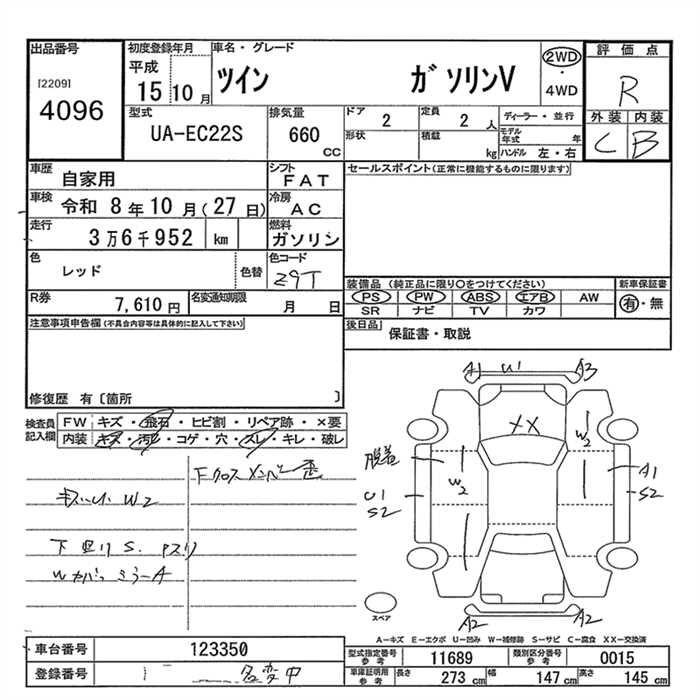 出品番号 初度登録年月 車名・グレード 評価点
[2209] 4096 平成 15 10 月 ツイン ガソリンV 2WD・4WD R
型式 排気量 ドア 定員 ディーラー・並行 外装 内装
UA-EC22S 660 CC 2 2 人 形状 積載 kg モデル年式 年 ハンドル 左・右 C B
車歴 自家用 シフト FAT セールスポイント(正常に機能するものに限ります)
車検 令和 8 年 10 月(27 日) 冷房 AC
走行 3万6千952 km 燃料 ガソリン
色 レッド 色替 色コード Z9T
装備品(純正品に限り○をつけてください) 新車保証書
R券 7,610 円 名変通知期限 月 日 PS PW ABS エアB AW 有・無
SR ナビ TV カワ
注意事項申告欄(不具合内容等は具体的に記入して下さい) 後日品 保証書・取説
修復歴 有〔箇所 〕
A1 U1 A3
検査員記入欄 FW キズ・飛石・ヒビ割・リペア跡・×要
内装 キズ・汚れ・コゲ・穴・スレ・キレ・破レ
XX
W2
脱着 W2 A1
U1 S2
S2
Fクロスメンバー歪
W2
下回りS.
ミラーA
スペア
A2 A2
A─キズ E─エクボ U─凹み W─補修跡 S─サビ C─腐食 XX─交換済
車台番号 123350 型式指定番号 参考 11689 類別区分番号 参考 0015
登録番号 名変中 車庫証明用 参考 長さ 273 cm 幅 147 cm 高さ 145 cm